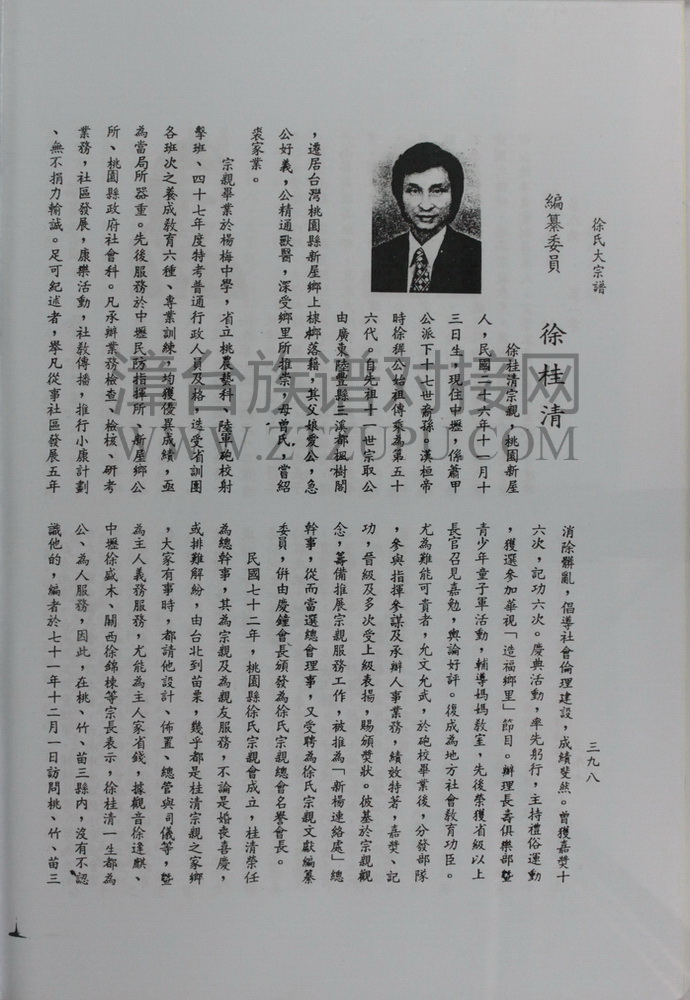 徐氏大宗譜
編纂委員　徐桂清
徐桂清宗親，桃園新屋
人，民國二十六年十一月十
三日生，現住中壢，係蕭甲
公派下十七世裔孫。漢桓帝
時徐穉公始祖傳乘為第五十
六代。首先祖十一世宗取公
由廣東陸豐縣三溪都楓樹閣
，遷居台灣桃園縣新屋鄉上槺榔落籍，其父娘愛公，急
公好義，公精通獸醫，深受鄉里所推崇，母曾氏，嘗紹
裘家業。
宗親畢業於楊梅中學，省立桃農藝科、陸軍砲校射
擊班、四十七年度特考普通行政人員及格，迭受省訓團
各班次之養成教育六種、專業訓練，均獲優異成績，亟
為當局所器重。先後服務於中壢民防指揮所、新屋鄉公
所、桃園縣政府社會科。凡承辦業務檢查、檢核、研考
業務，社區發展，康樂活動，社教傳播，推行小康計劃
、無不捐力輸誠。足可紀述者，舉凡從事社區發展五年
消除髒亂，倡導社會倫理建設，成績斐然。曾獲嘉獎十
六次，記功六次。慶典活動，率先躬行，主持禮俗運動
，獲選參加華視「造福鄉里」節目。辦理長壽俱樂部曁
青少年童子軍活動，輔導媽媽教室，先後榮獲省級以上
長官召見嘉勉，輿論好評。復成為地方社會教育功臣。
尤為難能可貴者，允文允武，於砲校畢業後，分發部隊
，參與指揮參謀及承辦人事業務，績效特著，嘉獎、記
功，晉級及多次受上級表揚，賜頒獎狀。彼基於宗親觀
念，籌備推展宗親服務工作，被推為「新楊連絡處」總
幹事，從而當選總會理事，又受聘為徐氏宗親文獻編纂
委員，併由慶鐘會長頒發為徐氏宗親總會名譽會長。
民國七十二年，桃園縣徐氏宗親會成立，桂清榮任
為總幹事，其為宗親及為親友服務，不論是婚喪喜慶，
或排難解紛，由台北到苗栗，幾乎都是桂清宗親之家鄉
，大家有事時，都請他設計、佈置、總管與司儀等，曁
為主人義務服務，尤能為主人家省錢，據觀音徐逢麒、
中壢徐盛木、關西徐錦棟等宗長表示，徐桂清一生都為
公、為人服務，因此，在桃、竹、苗三縣內，沒有不認
識他的，編者於七十一年十二月一日訪問桃、竹、苗三
三九八
漳台族谱对接网
WWW.ZTZUPU.COM